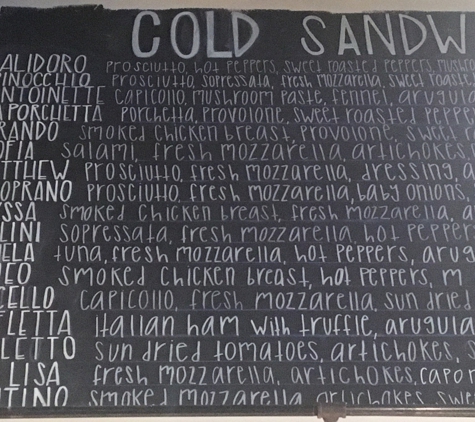 COLD SANDW
ALIDORO prosciutto, hot peppers, sweet roasted peppers, mushro
INOCCHIO prosciutto, sopressata, fresh mozzarella, sweet roaste
NTOINETTE capicollo, mushroom paste, fennel, arugula
PORCHETTA porchetta, provolone, sweet roasted pepp
RANDO smoked chicken breast, provolone, sweet
OFIA salami, fresh mozzarella, artichokes
TTHEW prosciutto, fresh mozzarella, dressing, a
OPRANO prosciutto, fresh mozzarella, baby onions,
SSA smoked chicken breast, fresh mozzarella, a
LINI sopressata, fresh mozzarella, hot pepper
ELA tuna, fresh mozzarella, hot peppers, arug
EO smoked chicken breast, hot peppers, m
CELLO capicollo, fresh mozzarella, sun dried
LETTA Italian ham with truffle, arugula
LETTO sun dried tomatoes, artichokes, s
LISA fresh mozzarella, artichokes, capon
TINO smoked mozzarella, artichokes, swe